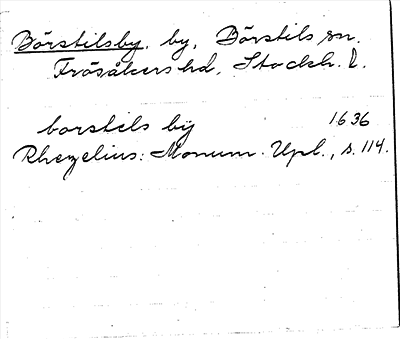 Börstilsby, by, Börstils sn.
Frösåkers hd, Stockh. l.
borstels bÿ 1636
Rhezelius: Monum. Upl., s. 114.